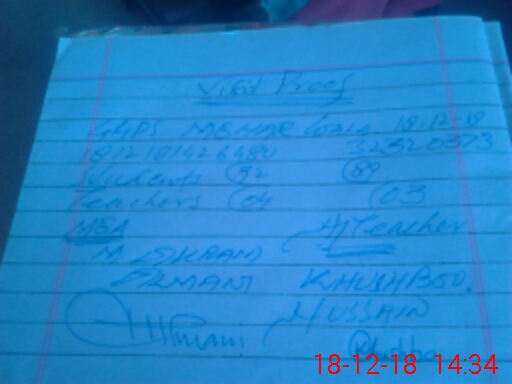 Visit Proof
GGPS MEMAR 18-12-18
1812181426480 32320373
Students 92 89
Teachers 04 03
MEA H/Teacher
M. IKRAM
USMANI KHUSHBOO
Usmani HUSSAIN
18-12-18 14:34